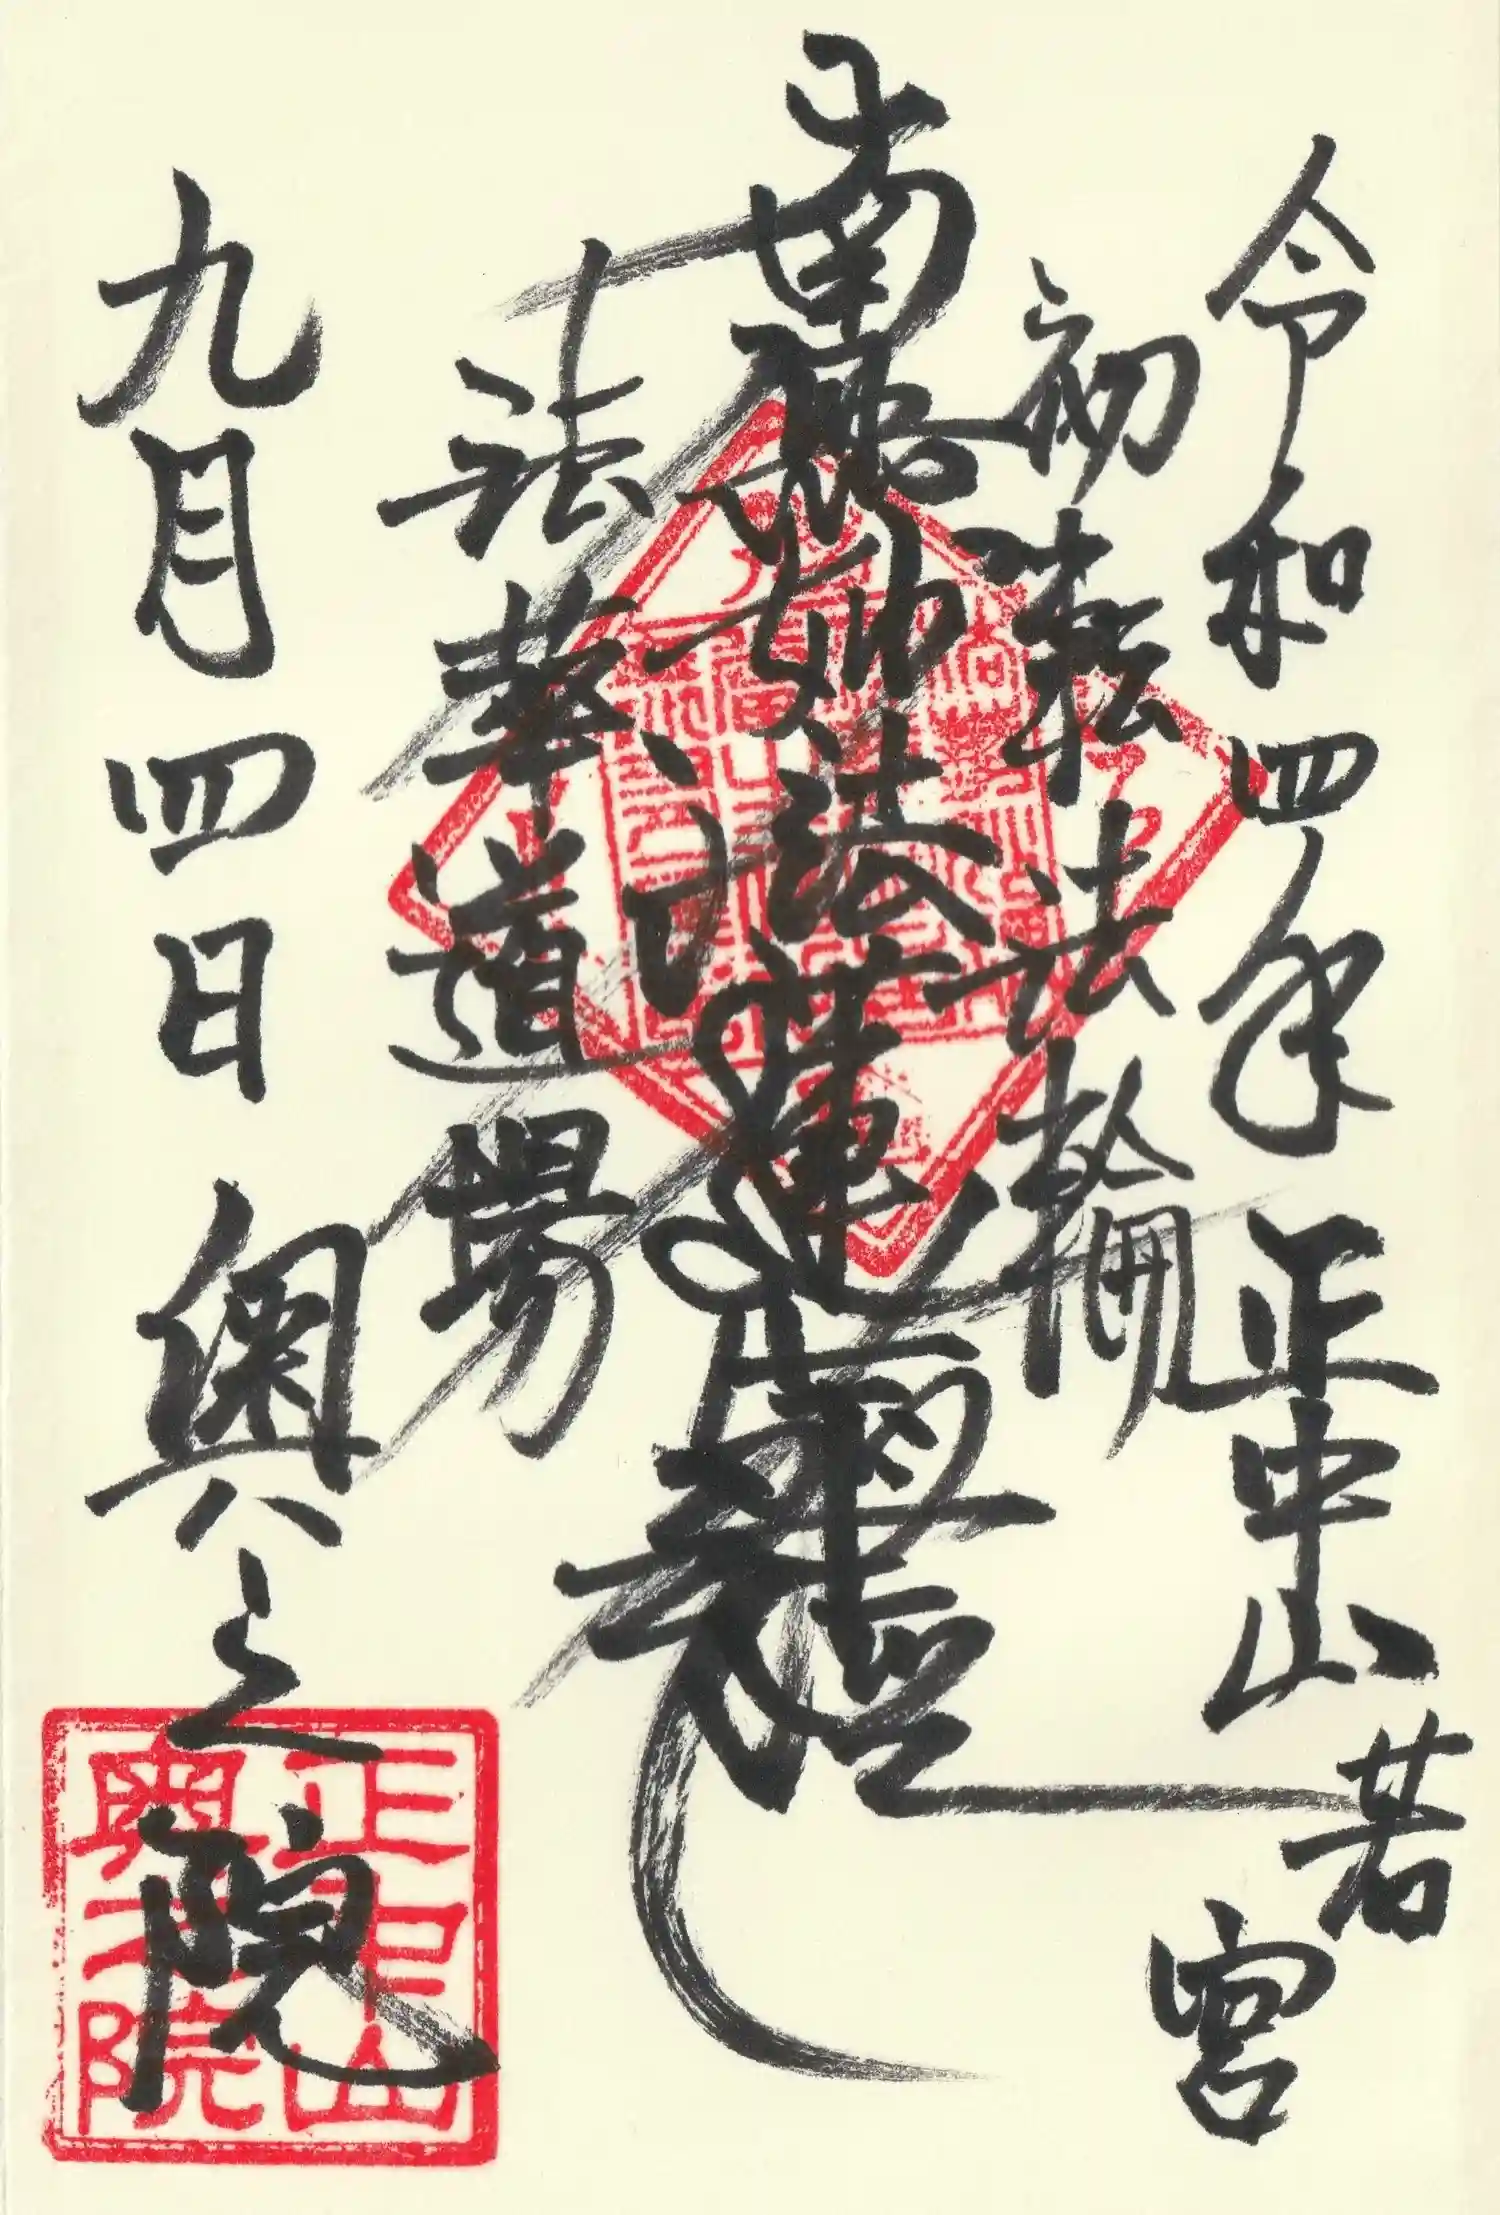 令和四年 正中山 若宮
初転法輪
南無妙法蓮華経
法華道場
九月四日 奥之院
正中山
奥之院